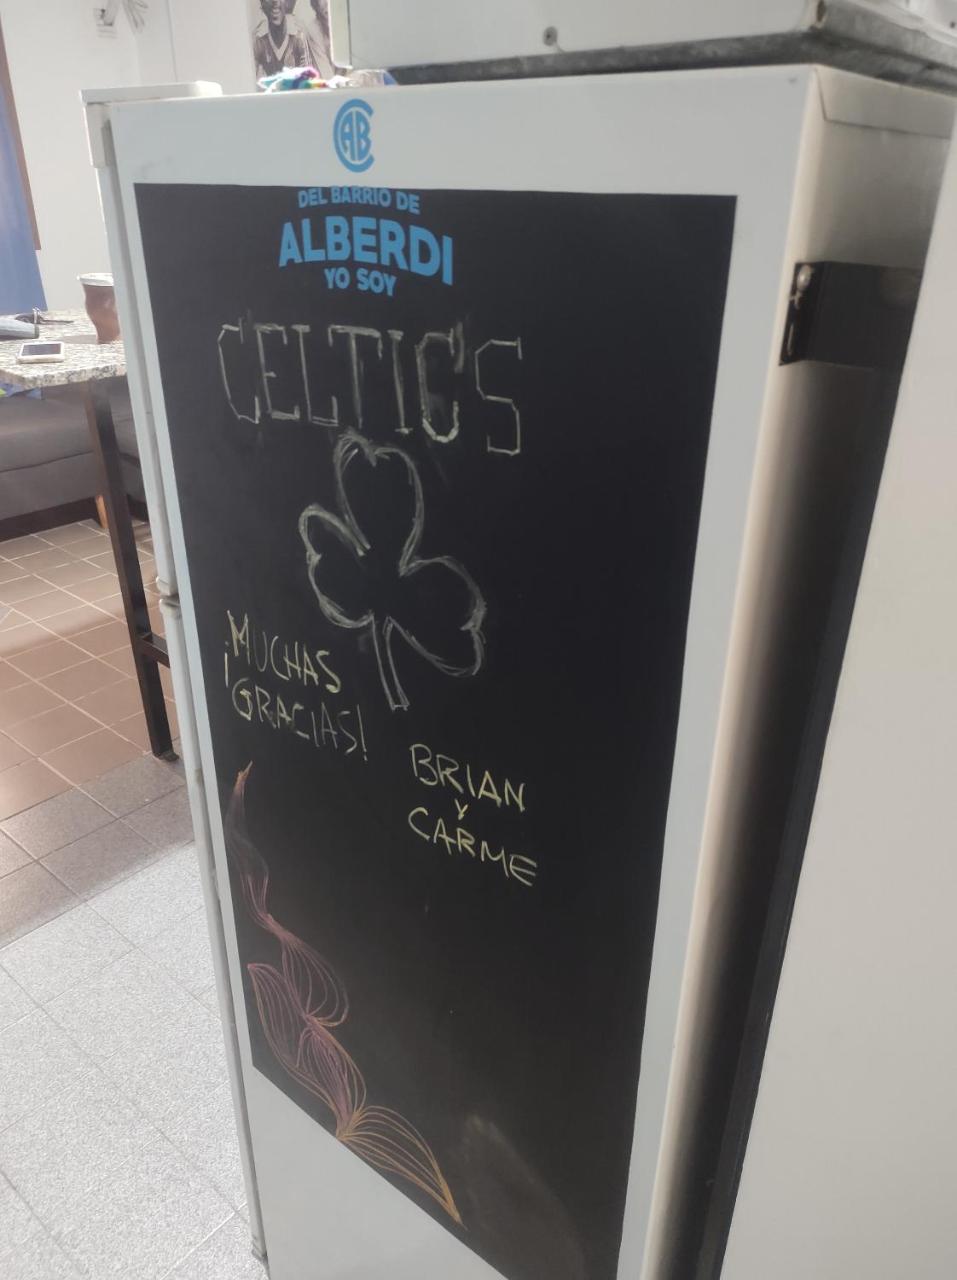 CAB
DEL BARRIO DE
ALBERDI
YO SOY
CELTIC'S
¡MUCHAS
GRACIAS!
BRIAN
Y
CARME